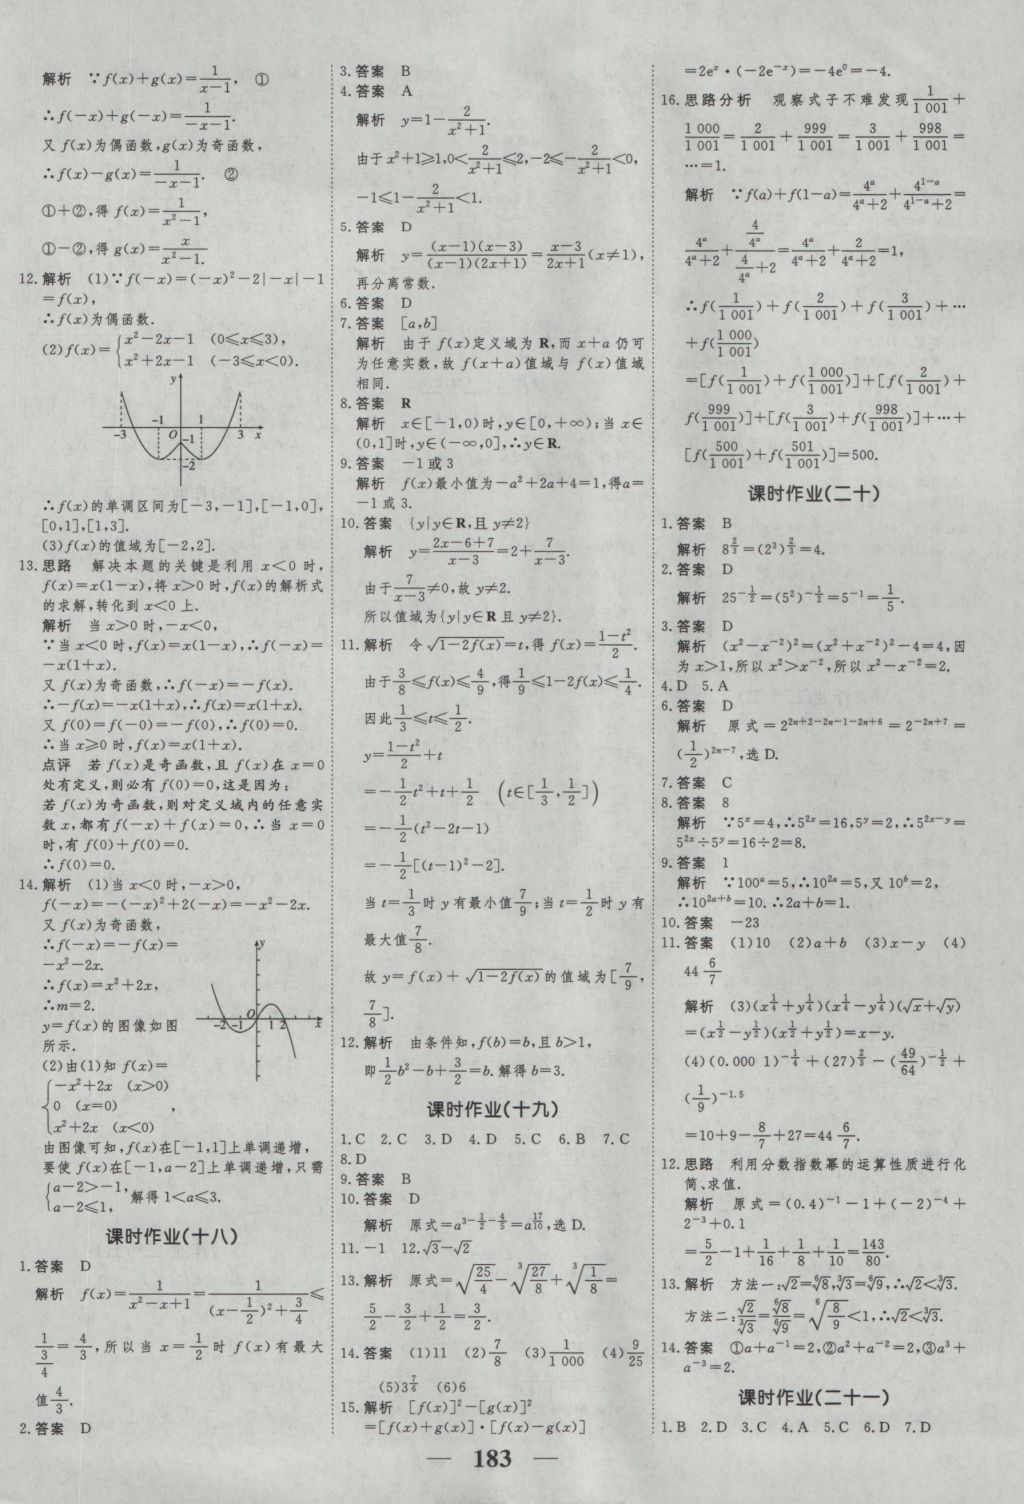 解析 ∵f(x)+g(x)=1/(x-1), ①
∴f(-x)+g(-x)=1/(-x-1).
又 f(x)为偶函数,g(x)为奇函数,
∴f(x)-g(x)=1/(-x-1). ②
①+②,得 f(x)=1/(x²-1),
①-②,得 g(x)=x/(x²-1).
12.解析 (1)∵f(-x)=(-x)²-2|-x|-1
=f(x),
∴f(x)为偶函数.
(2)f(x)={x²-2x-1 (0≤x≤3),
x²+2x-1 (-3≤x<0).
y
-3 -1 O 1 3 x
-1
-2
∴f(x)的单调区间为[-3,-1],[-1,0],
[0,1],[1,3].
(3)f(x)的值域为[-2,2].
13.思路 解决本题的关键是利用 x<0 时,
f(x)=x(1-x),将x>0 时,f(x)的解析式
的求解,转化到 x<0 上.
解析 当 x>0 时,-x<0,
∵当 x<0 时,f(x)=x(1-x),∴f(-x)=
-x(1+x).
又 f(x)为奇函数,∴f(-x)=-f(x).
∴-f(x)=-x(1+x),∴f(x)=x(1+x).
又 f(0)=f(-0)=-f(0),∴f(0)=0.
∴当 x≥0 时,f(x)=x(1+x).
点评 若 f(x)是奇函数,且 f(x)在 x=0
处有定义,则必有 f(0)=0,这是因为:
若 f(x)为奇函数,则对定义域内的任意实
数 x,都有 f(-x)+f(x)=0,∴当 x=0
时,有 f(0)+f(0)=0.
∴f(0)=0.
14.解析 (1)当 x<0 时,-x>0,
f(-x)=-(-x)²+2(-x)=-x²-2x.
又 f(x)为奇函数,
∴f(-x)=-f(x)=
-x²-2x.
∴f(x)=x²+2x,
∴m=2.
y=f(x)的图像如图
所示.
y
-2 -1 O 1 2 x
(2)由(1)知 f(x)=
{-x²+2x (x>0)
0 (x=0) ,
x²+2x (x<0)
由图像可知,f(x)在[-1,1]上单调递增,
要使 f(x)在[-1,a-2]上单调递增,只需
{a-2>-1,
a-2≤1, 解得 1<a≤3.
课时作业(十八)
1.答案 D
解析 f(x)=1/(x²-x+1)=1/((x-1/2)²+3/4)≤
1/(3/4)=4/3,所以当 x=1/2 时 f(x)有最大
值4/3.
2.答案 D
3.答案 B
4.答案 A
解析 y=1-2/(x²+1).
由于 x²+1≥1,0<2/(x²+1)≤2,-2≤-2/(x²+1)<0,
-1≤1-2/(x²+1)<1.
5.答案 D
解析 y=(x-1)(x-3)/((x-1)(2x+1))=(x-3)/(2x+1)(x≠1),
再分离常数.
6.答案 D
7.答案 [a,b]
解析 由于 f(x)定义域为 R,而 x+a 仍可
为任意实数,故 f(x+a)值域与 f(x)值域
相同.
8.答案 R
解析 x∈[-1,0)时,y∈[0,+∞);当 x∈
(0,1]时,y∈(-∞,0],∴y∈R.
9.答案 -1或3
解析 f(x)最小值为-a²+2a+4=1,得a=
-1 或 3.
10.答案 {y|y∈R,且 y≠2}
解析 y=(2x-6+7)/(x-3)=2+7/(x-3).
由于7/(x-3)≠0,故 y≠2.
所以值域为{y|y∈R 且 y≠2}.
11.解析 令√(1-2f(x))=t,得 f(x)=(1-t²)/2.
由于3/8≤f(x)≤4/9,得1/9≤1-2f(x)≤1/4.
因此1/3≤t≤1/2.
y=(1-t²)/2+t
=-1/2t²+t+1/2 (t∈[1/3,1/2])
=-1/2(t²-2t-1)
=-1/2[(t-1)²-2].
当 t=1/3时 y 有最小值7/9;当 t=1/2时 y 有
最大值7/8.
故 y=f(x)+√(1-2f(x))的值域为[7/9,
7/8].
12.解析 由条件知,f(b)=b,且 b>1,
即1/2b²-b+3/2=b.解得 b=3.
课时作业(十九)
1.C 2.C 3.D 4.D 5.C 6.B 7.C
8.D
9.答案 B
10.答案 D
解析 原式=a^(3-1/2-4/5)=a^(17/10),选 D.
11.-1 12.√3-√2
13.解析 原式=√(25/4)-³√(27/8)+³√(1/8)=
5/2-3/2+1/2=3/2.
14.答案 (1)11 (2)7/8 (3)1/1 000 (4)9/25
(5)3^(7/6) (6)6
15.解析 [f(x)]²-[g(x)]²
=[f(x)+g(x)]·[f(x)-g(x)]
=2eˣ·(-2e⁻ˣ)=-4e⁰=-4.
16.思路分析 观察式子不难发现1/1 001+
1 000/1 001=2/1 001+999/1 001=3/1 001+998/1 001=
…=1.
解析 ∵f(a)+f(1-a)=4ᵃ/(4ᵃ+2)+4¹⁻ᵃ/(4¹⁻ᵃ+2)=
4ᵃ/(4ᵃ+2)+(4/4ᵃ)/(4/4ᵃ+2)=4ᵃ/(4ᵃ+2)+2/(4ᵃ+2)=1,
∴f(1/1 001)+f(2/1 001)+f(3/1 001)+…
+f(1 000/1 001)
=[f(1/1 001)+f(1 000/1 001)]+[f(2/1 001)+
f(999/1 001)]+[f(3/1 001)+f(998/1 001)]+…+
[f(500/1 001)+f(501/1 001)]=500.
课时作业(二十)
1.答案 B
解析 8^(2/3)=(2³)^(2/3)=4.
2.答案 D
解析 25^(-1/2)=(5²)^(-1/2)=5⁻¹=1/5.
3.答案 D
解析 (x²-x⁻²)²=(x²+x⁻²)²-4=4,因
为 x>1,所以 x²>x⁻²,所以 x²-x⁻²=2.
4.D 5.A
6.答案 D
解析 原式=2^(2n+2-2n-1-2n+6)=2^(-2n+7)=
(1/2)^(2n-7),选 D.
7.答案 C
8.答案 8
解析 ∵5ˣ=4,∴5²ˣ=16,5ʸ=2,∴5²ˣ⁻ʸ=
5²ˣ÷5ʸ=16÷2=8.
9.答案 1
解析 ∵100ᵃ=5,∴10²ᵃ=5,又 10ᵇ=2,
∴10²ᵃ⁺ᵇ=10.∴2a+b=1.
10.答案 -23
11.答案 (1)10 (2)a+b (3)x-y (4)
44 6/7
解析 (3)(x^(1/4)+y^(1/4))(x^(1/4)-y^(1/4))(√x+√y)
=(x^(1/2)-y^(1/2))(x^(1/2)+y^(1/2))=x-y.
(4)(0.000 1)^(-1/4)+(27)^(2/3)-(49/64)^(-1/2)+
(1/9)^(-1.5)
=10+9-8/7+27=44 6/7.
12.思路 利用分数指数幂的运算性质进行化
简、求值.
解析 原式=(0.4)⁻¹-1+(-2)⁻⁴+
2⁻³+0.1
=5/2-1+1/16+1/8+1/10=143/80.
13.解析 方法一:√2=⁶√8,³√3=⁶√9,∴√2<³√3.
方法二:√2/³√3=⁶√8/⁶√9=⁶√(8/9)<1,∴√2<³√3.
14.答案 ①a+a⁻¹=2,②a²+a⁻²=2,③a³+
a⁻³=2.
课时作业(二十一)
1.B 2.D 3.C 4.A 5.C 6.D 7.D
— 183 —